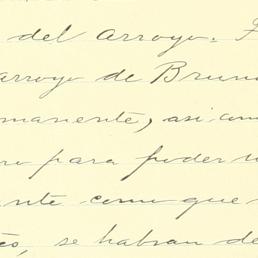 del arroyo =
arroyo de Brun
manente, asi com
ro para poder
nte como que
se habran de